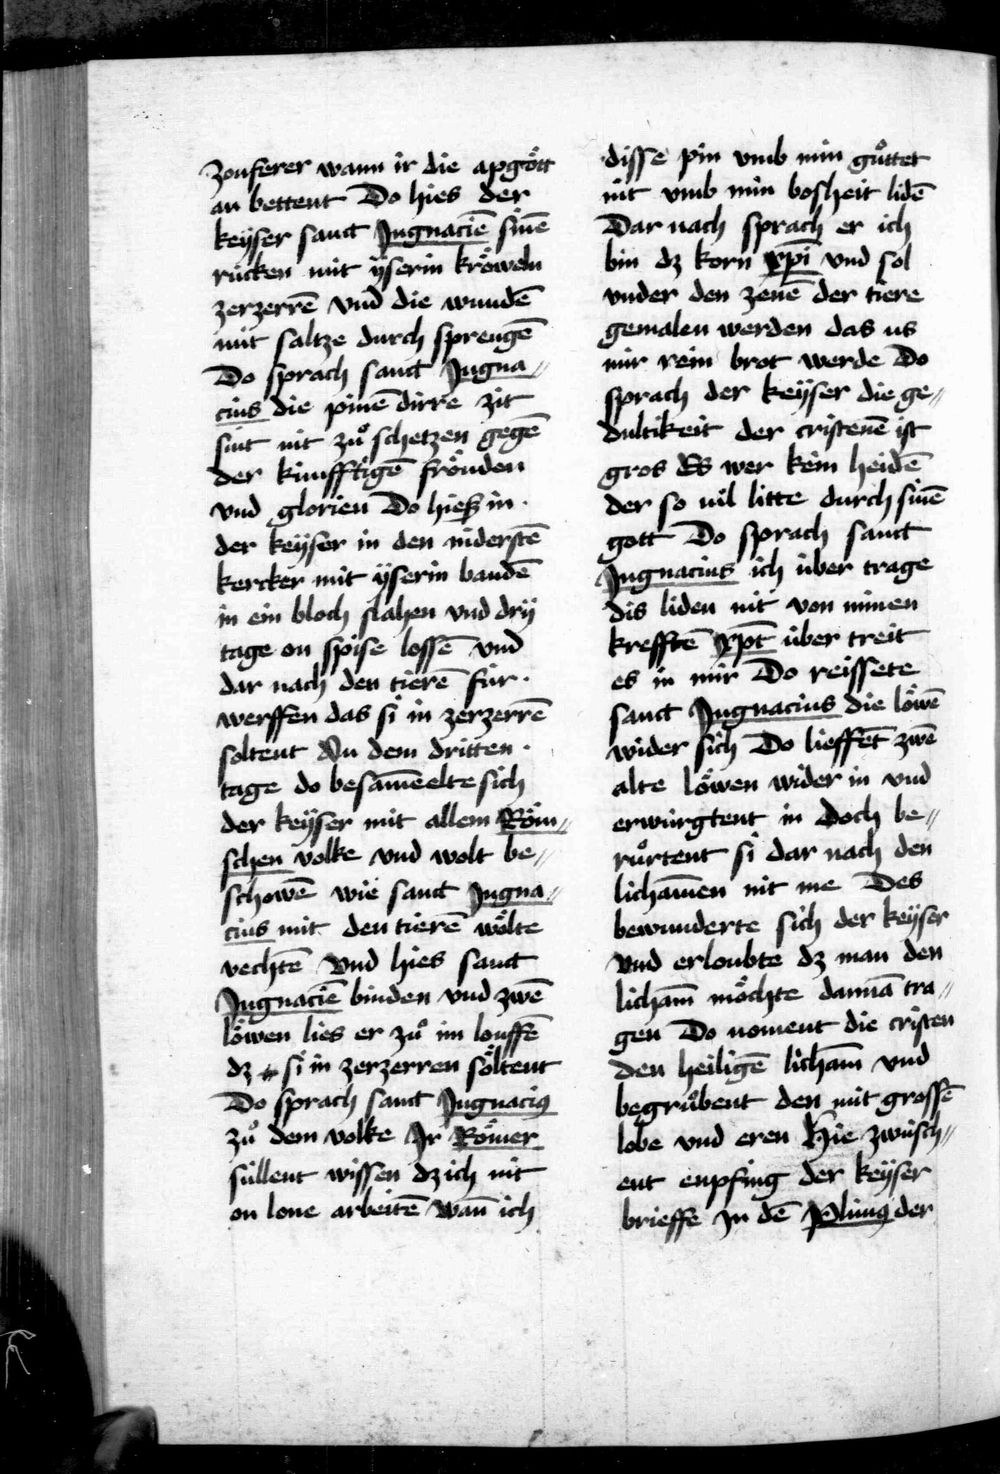 zouferer wann ir die apgött
an bettent Do hies der
keÿser sanct Jngnaciē sinē
rücken mit ÿserin kröweln
zerzerrē vnd die wundē
mit saltze durch sprengē
Do sprach sanct Jngna〃
cius die pinē dirre zit
sint nit zuͦ schetzen gegē
der kúnfftigē fröuden
vnd glorien Do hies in ·
der keÿser in den niderstē
kercker mit ÿserin bandē
in ein bloch slahen vnd drÿ
tage on spise lossē vnd
dar nach den tierē für ·
werffen das si in zerzerrē
soltent An dem dritten ·
tage do besam̄eelte sich
der keÿser mit allem Röm〃
schen volke vnd wolt be〃
schowē wie sanct Jngna〃
cius mit den tierē wölte
vechtē Vnd hies sanct
Jngnaciē binden vnd zwē
löwen lies er zuͦ im louffē
dz si in zerzerren söltent
Do sprach sanct Jngnaciꝰ
zuͦ dem volke Jr Römer
süllent wissen dz ich nit
on lone arbeitē Wan̄ ich
disse pin vmb min guͦtter
nit vmb min bosheit lidē
Dar nach sprach er ich
bin dz korn xp̄i vnd sol
vnder den zenē der tiere
gemalen werden das us
mir rein brot werde Do
sprach der keÿser die ge〃
dultikeit der cristenē ist
gros Es wer kein heidē
der so uil litte durch sinē
gott Do sprach sanct
Jngnacius ich über trage
dis liden nit von minen
krefftē xp̄t über treit
es in mir Do reissete
sanct Jngnacius die löwē
wider sich Do lieffēt zwē
alte löwen wider in vnd
erwürgtent in Doch be〃
ruͦrtent si dar nach den
licham̄en nit me Des
bewunderte sich der keÿser
Vnd erloubte dz man den
licham̄ möchte dannā tra〃
gen Do noment die cristen
den heiligē licham̄ vnd
begruͦbent den mit grossē
lobe vnd eren Hie zwüsch〃
ent enpfing der keÿser
brieffe Jn dē Pliniꝰ der